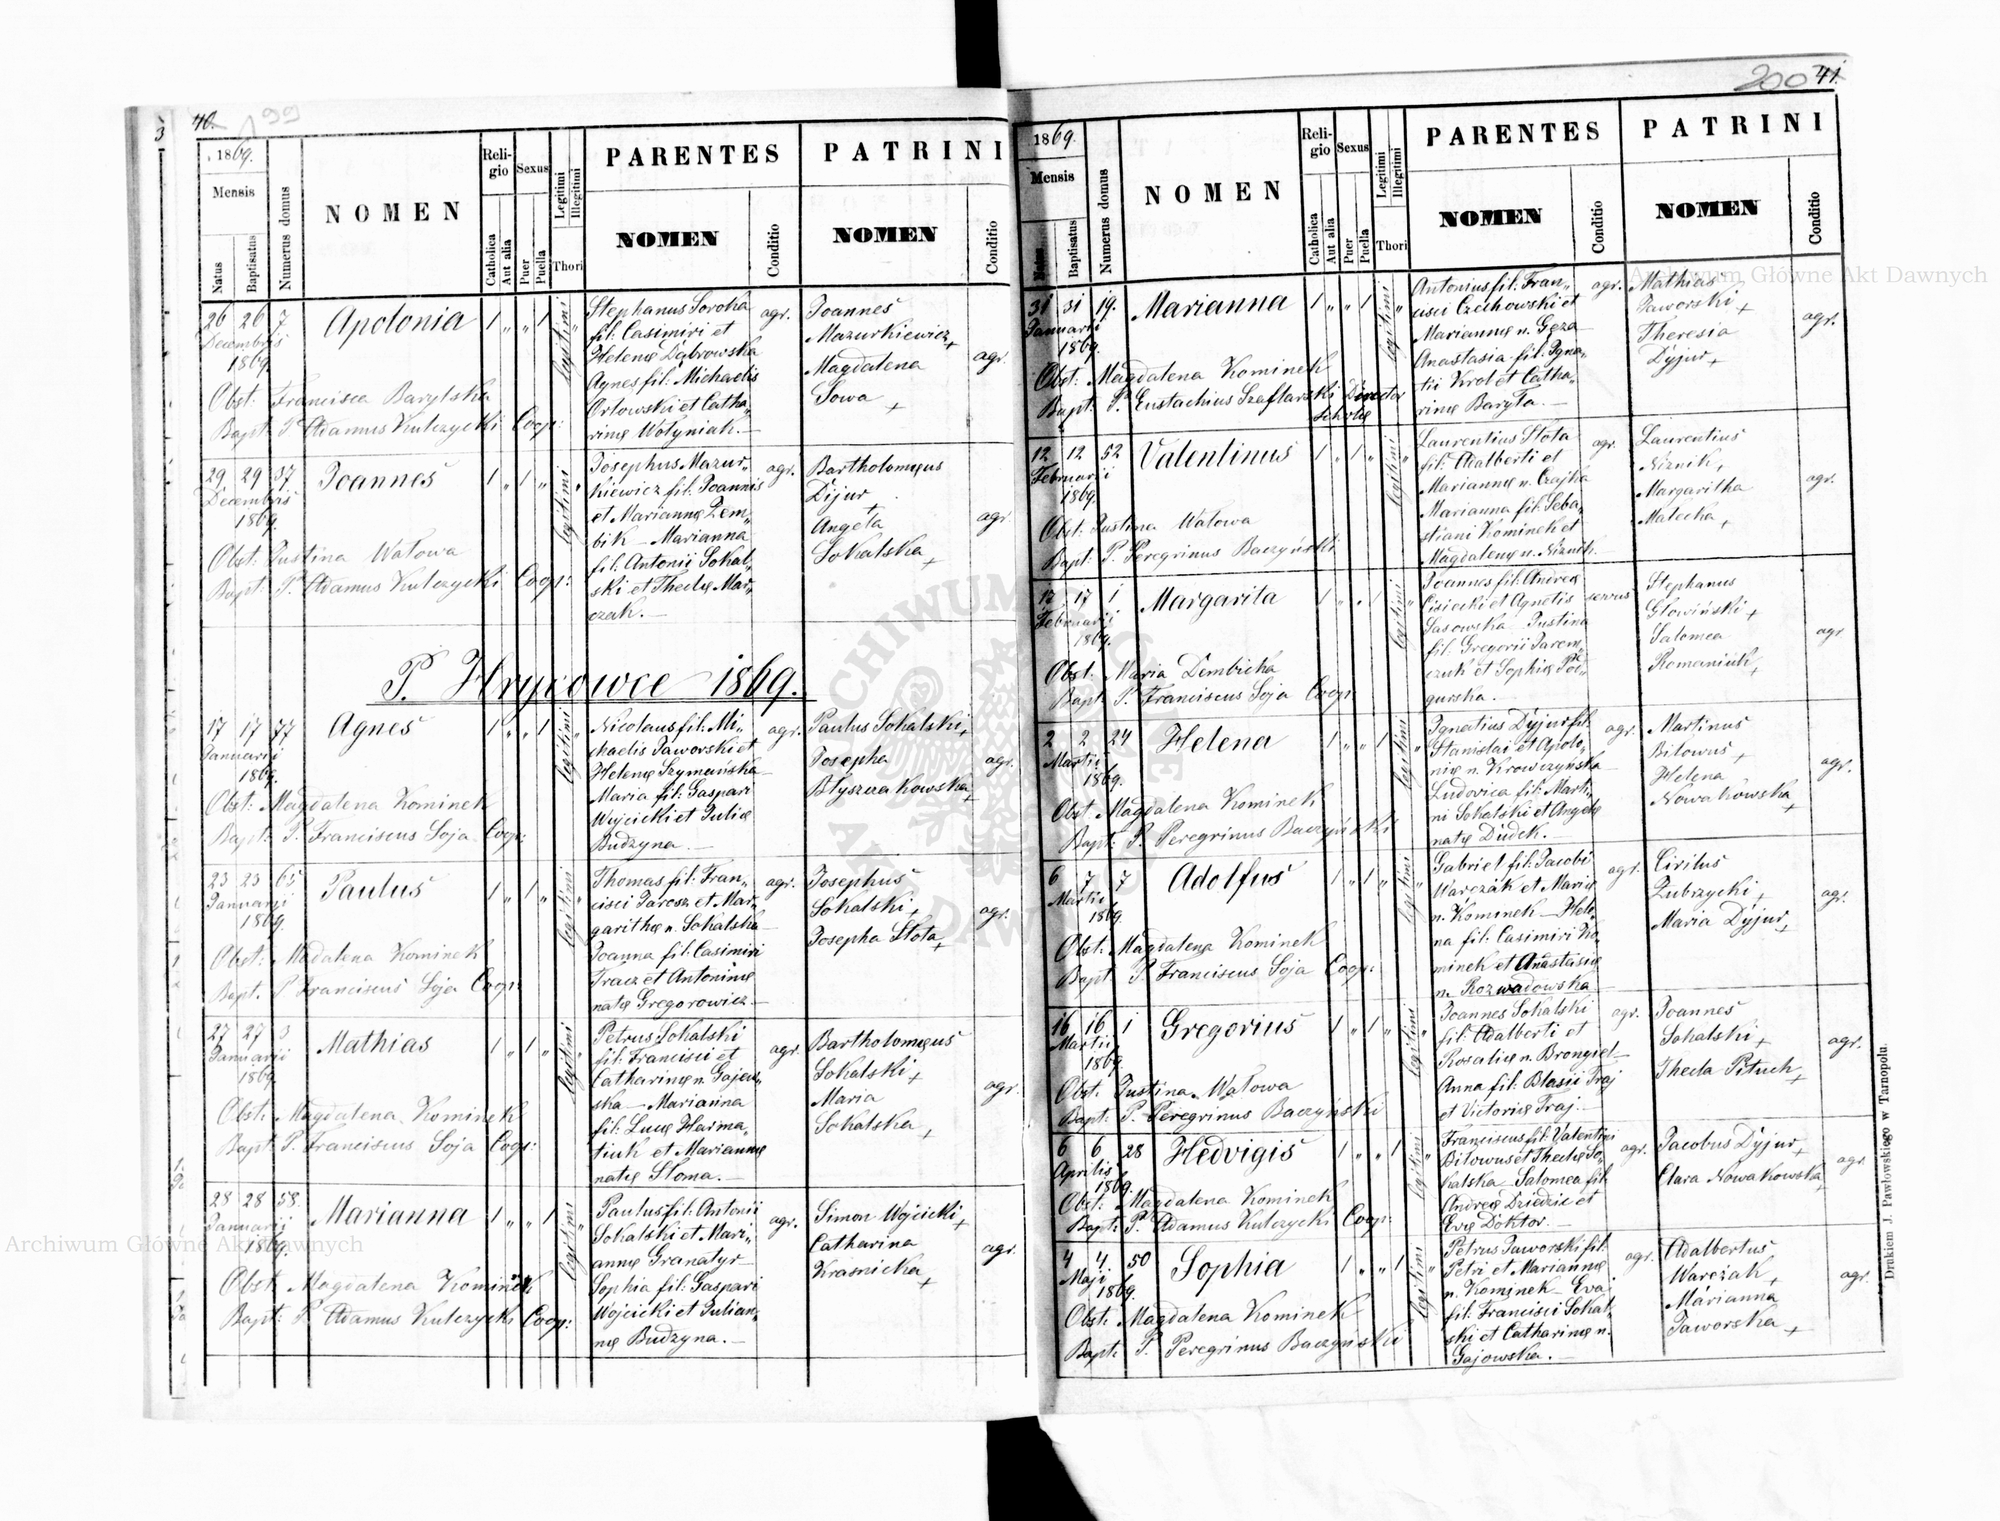 40.
199
3
1869.
Mensis
Natus
Baptisatus
Numerus domus
NOMEN
Religio
Catholica
Aut alia
Sexus
Puer
Puella
Legitimi
Illegitimi
Thori
PARENTES
NOMEN
Conditio
PATRINI
NOMEN
Conditio
26 26 7
Decembris
1869.
Apolonia
1 „ „ 1
legitimi
Stephanus Soroka
fil: Casimiri et
Helenę Dąbrowska
Agnes fil: Michaelis
Orłowski et Catha„
rinę Wołyniak.—
agr.
Joannes
Mazurkiewicz +
Magdalena
Sowa +
agr.
Obst: Francisca Barylska
Bapt: P. Adamus Kulczycki Coop:
29 29 37
Decembris
1869.
Joannes
1 „ 1 „
legitimi „
Josephus Mazur„
kiewicz fil: Joannis
et Mariannę Zem„
bik — Marianna
fil: Antonii Sokal„
ski et Theclę Mar„
czak.—
agr.
Bartholomęus
Dijur
+
Angela
Sokalska +
agr.
Obst: Justina Wałowa
Bapt: P. Adamus Kulczycki Coop:
P. Hrycowce 1869.
17 17 77
Januarii
1869.
Agnes
1 „ „ 1
legitimi „
Nicolaus fil: Mi„
chaelis Jaworski et
Helenę Szymańska
Maria fil: Gaspari
Wojcicki et Julię
Budzyna.—
agr.
Paulus Sokalski +
Josepha
Błyszczakowska +
agr.
Obst: Magdalena Kominek
Bapt: P. Franciscus Soja Coop:
23 23 65
Januarii
1869.
Paulus
1 „ 1 „
legitimi „
Thomas fil: Fran„
cisci Jarosz et Mar„
garithę n. Sokalska
Joanna fil: Casimiri
Tracz et Antoninę
natę Gregorowicz —
agr.
Josephus
Sokalski +
Josepha Słota +
agr.
Obst: Madalena Kominek
Bapt. P. Franciscus Soja Coop:
27 27 3
Januarii
1869.
Mathias
1 „ 1 „
legitimi „
Petrus Sokalski
fil: Francisci et
Catharinę n. Gajew„
ska — Marianna
fil: Lucę Harma„
tiuk et Mariannę
natę Słoma.—
agr.
Bartholomęus
Sokalski +
Maria
Sokalska +
agr.
Obst: Magdalena Kominek
Bapt: P. Franciscus Soja Coop:
28 28 58.
Januarii
1869.
Marianna
1 „ „ 1
legitimi „
Paulus fil: Antonii
Sokalski et Mari„
annę Granatyr —
Sophia fil: Gaspari
Wojcicki et Julian„
nę Budzyna.—
agr.
Simon Wojcicki +
Catharina
Krasnicka +
agr.
Obst: Magdalena Kominek
Bapt: P. Adamus Kulczycki Coop:
200
41.
1869.
Mensis
Natus
Baptisatus
Numerus domus
NOMEN
Religio
Catholica
Aut alia
Sexus
Puer
Puella
Legitimi
Illegitimi
Thori
PARENTES
NOMEN
Conditio
PATRINI
NOMEN
Conditio
31 31 19.
Januarii
1869.
Marianna
1 „ „ 1
legitimi „
Antonius fil: Fran„
cisci Czechowski et
Mariannę n. Gęza
Anastasia fil: Igna„
tii Krol et Catha„
rinę Baryła.—
agr.
Mathias
Jaworski +
Theresia
Dyjur +
agr.
Obst: Magdalena Kominek
Bapt: P. Eustachius Szaflarski Director
Scholę
12 12 52
Februarii
1869.
Valentinus
1 „ 1 „
legitimi „
Laurentius Słota
fil: Adalberti et
Mariannę n. Czajka
Marianna fil: Seba„
stiani Kominek et
Magdalenę n. Niznik.
agr.
Laurentius
Niznik +
Margaritha
Malecka +
agr.
Obst: Justina Wałowa
Bapt: P. Peregrinus Baczyński
17 17 1
Februarii
1869.
Margarita
1 „ „ 1
legitimi „
Joannes fil: Andreę
Cisiecki et Agnetis
Sasowska — Justina
fil: Gregorii Jarem„
czuk et Sophię Pod„
gurska.—
servus
Stephanus
Głowiński +
Salomea
Romaniuk +
agr.
Obst. Maria Dembicka
Bapt: P. Franciscus Soja Coop
2 2 24
Martii
1869.
Helena
1 „ „ 1
legitimi „
Ignatius Dyjur fil:
Stanislai et Apolo„
nię n. Krowczyńska
Ludovica fil: Marti„
ni Sokalski et Angelę
natę Dudek.—
agr.
Martinus
Bilowus +
Helena
Nowakowska +
agr.
Obst: Magdalena Kominek
Bapt: P. Peregrinus Baczyński
6 7 7
Martii
1869
Adolfus
1 „ 1 „
legitimi „
Gabriel fil: Jacobi
Warczak et Marię
n. Kominek — Hele„
na fil: Casimiri Ko„
minek et Anastasię
n. Rozwadowska
agr.
Cirilus
Zubrzycki +
Maria Dyjur +
agr.
Obst: Magdalena Kominek
Bapt: P. Franciscus Soja Coop:
16 16 1
Martii
1869.
Gregorius
1 „ 1 „
legitimi „
Joannes Sokalski
fil: Adalberti et
Rosalię n. Brongiel —
Anna fil: Blasii Traj
et Victorię Traj.
agr.
Joannes
Sokalski +
Thecla Pituch +
agr.
Obst: Justina Wałowa
Bapt: P. Peregrinus Baczyński
6 6 28
Aprilis
1869.
Hedvigis
1 „ „ 1
legitimi „
Franciscus fil: Valentini
Bilowus et Theclę So„
kalska — Salomea fil:
Andreę Dziedzic et
Evę Doktor.—
agr.
Jacobus Dyjur +
Clara Nowakowska +
agr.
Obst: Magdalena Kominek
Bapt: P. Adamus Kulczycki Coop:
4 4 50
Maji
1869.
Sophia
1 „ „ 1
legitimi „
Petrus Jaworski fil:
Petri et Mariannę
n. Kominek — Eva
fil: Francisci Sokal„
ski et Catharinę n.
Gajowska.—
agr.
Adalbertus
Warczak +
Marianna
Jaworska +
agr.
Obst: Magdalena Kominek
Bapt: P. Peregrinus Baczyński
Drukiem J. Pawłowskiego w Tarnopolu.
Archiwum Główne Akt Dawnych
Archiwum Główne Akt Dawnych
ARCHIWUM GŁÓWNE AKT DAWNYCH